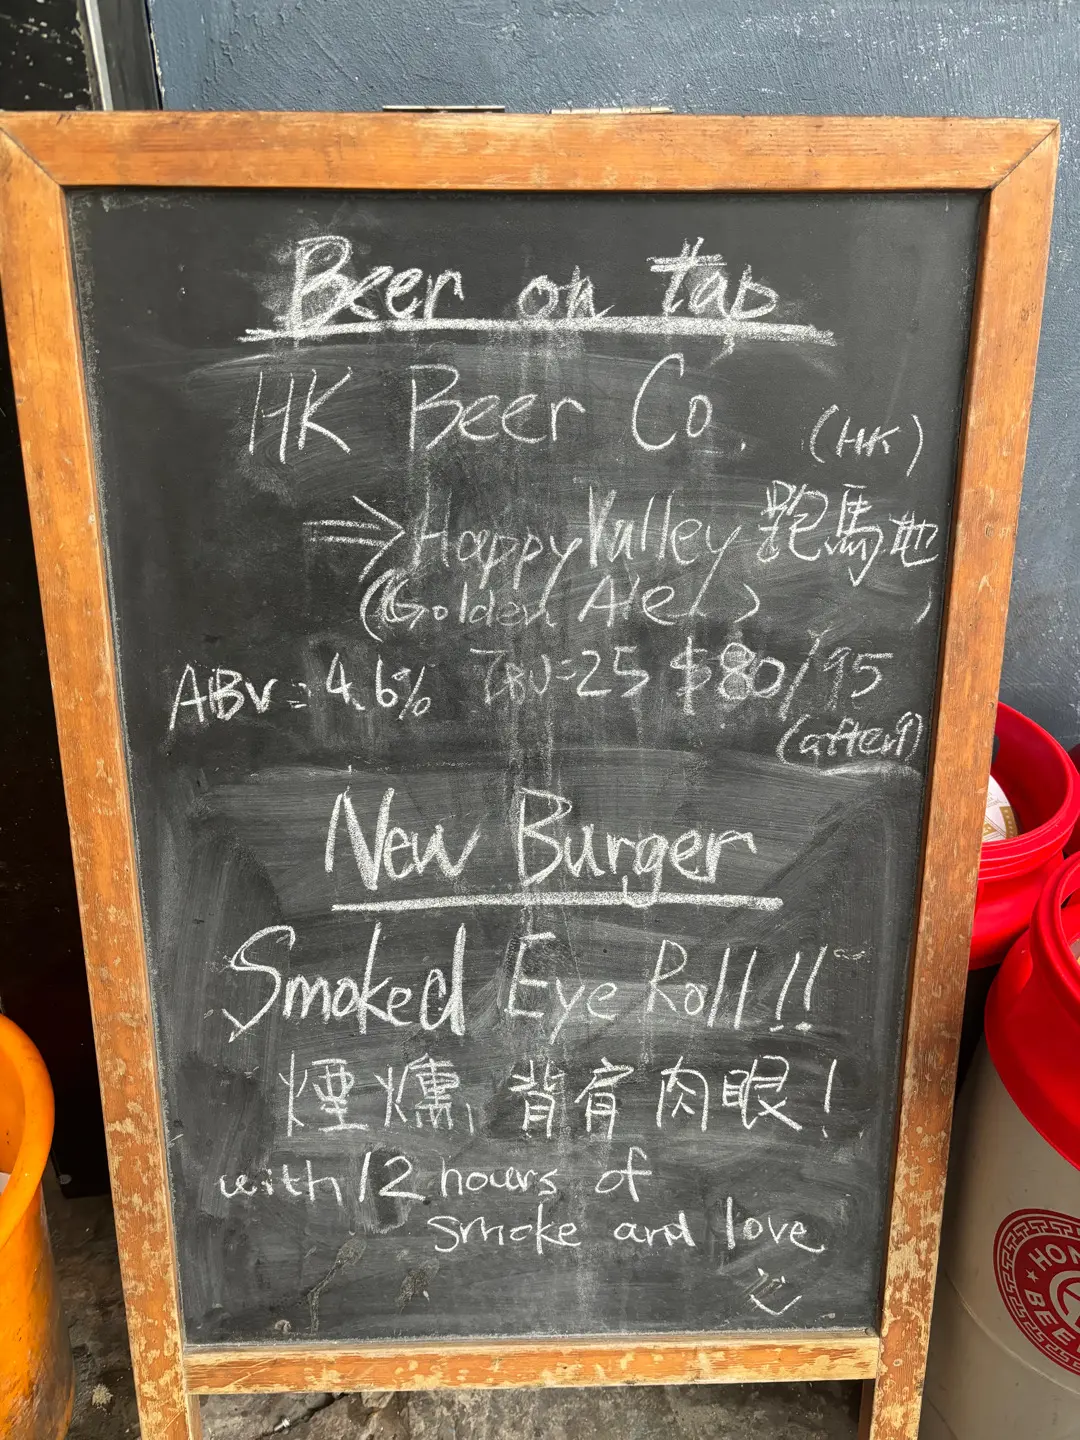 Beer on tap
HK Beer Co. (HK)
⇒ Happy Valley 跑馬地
(Golden Ale)
ABV = 4.6% IBU=25 $80/95
(after 9)
New Burger
Smoked Eye Roll!!
煙燻 背脊肉眼!
with 12 hours of
smoke and love
HON
BEE